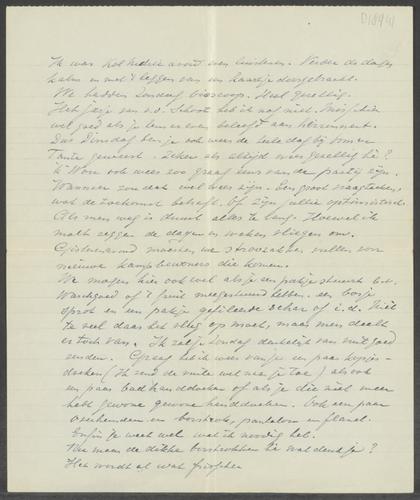 D18941
Ik was heel even van luisteren. Verder de dagen
kalm en met 't leggen van een kaartje doorgebracht.
We hadden Zondag bioscoop. Heel gezellig.
Het jasje van v.d. Schoot heb ik nog niet. Misschien
wel goed als je hem er even beleefd aan herinnert.
Dus Dinsdag ben je ook weer de hele dag bij
Tante geweest. Zeker als altijd weer gezellig hè?
'k Wou ook weer zoo graag eens van de partij zijn.
Wanneer zou dat wel weer zijn. Een groot vraagteeken,
wat de toekomst betreft. Of zijn jullie optimistisch.
Als men weg is duurt alles te lang. Hoewel ik
moet zeggen de dagen en weken vliegen om.
Gisteravond moesten we stroozakken vullen voor
nieuwe kampbewoners die komen.
We mogen hier ook wel als je een pakje stuurt b.v.
Waschgoed of 't fruit meegestuurd hebben. een bosje
en een pakje gefileerde schar of i.d. Niet
te veel daar het vlug op moet, maar men deelt
er toch van. Ik zal je Zondag denkelijk van
zenden. Graag heb ik weer van je een paar
doeken (Ik zend de vuile wel naar je toe) als ook
een paar badhanddoeken of als je die niet meer
hebt gewone handdoeken. Ook een paar
overhemden en borstrok, pantalon en flanel.
Enfin je weet wel wat ik noodig heb.
Nu maar de dikke borstrokken hè wat denk je?
Het wordt al wat frisscher